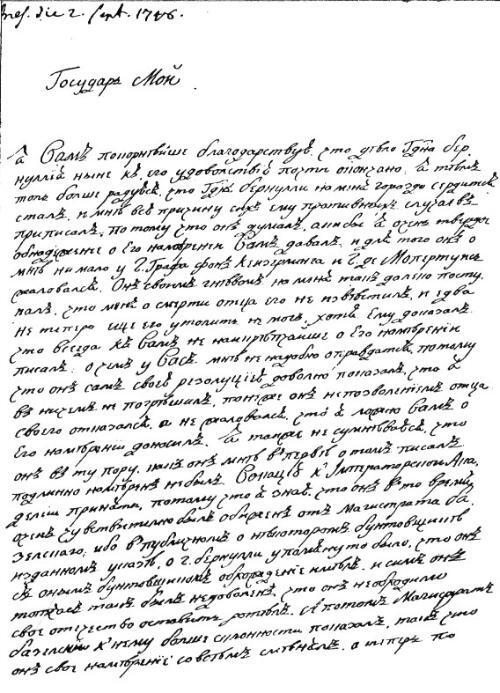 Praes. die 2. Sept. 1746.
Государь Мой
Я Вамъ покорнѣйше благодарствую, что дѣло Гдна Бер
нуллія ныне къ его удовольствію почти окончано. А тѣмъ
толь больше радуюся, что Гднъ Бернулли на меня гораздо сердитъ
сталъ, и мнѣ всю причину сихъ ему противныхъ случаевъ
приписалъ, потому что онъ думалъ, аки бы я очень твердое
обнадеженіе о его намѣреніи Вамъ давалъ, и для того онъ о
мнѣ ни мало у Г. Графа фонъ Кейзерлинга и Г. де Мопертуиса
жаловался. Онъ своимъ гнѣвомъ на меня такъ далеко посту
палъ, что меня о смерти отца его не извѣстилъ, и едва
не теперь ище его утолить не могъ, хотя ему доказалъ
что всегда къ Вамъ не наикрѣпчайше о его намѣреніи
писалъ. О чемъ у Васъ мнѣ не надобно оправдатся, потому
что онъ самъ своею резолуціею доволно показалъ, что я
въ ничемъ не погрѣшилъ, понеже онъ непозволеніемъ отца
своего отказался, а не жаловался, что я ложно Вамъ о
его намѣреніи доносилъ. Я также не сумнѣваюся, что
онъ въ ту пору, какъ онъ мнѣ въ первые о томъ писалъ
подлинно намѣренъ былъ Вокацію к Императорской Ака
деміи принять, потому что я знаю, что онъ въ то время
очень чувствително былъ обиженъ отъ Магистрата ба
зелскаго, ибо въ публичномъ о нѣкоторомъ бунтовщикѣ
изданномъ указѣ, о Г. Бернулли упомянуто было, что онъ
съ онымъ бунтовщикомъ обхожденіе имѣлъ, и симъ онъ
тотчасъ такъ былъ недоволенъ, что онъ необходимо
свое отечество оставить хотѣлъ. А потомъ Магистратъ
базелскій къ нему больше склонности показалъ, такъ что
онъ свое намѣреніе совсѣмъ смѣнялъ, а теперь по